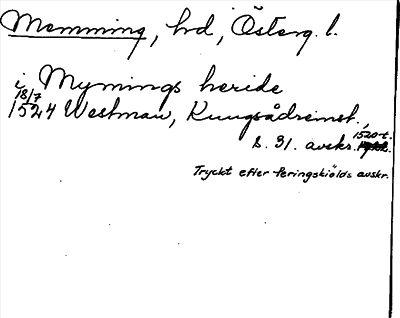 Memming, hd, Österg. l.
i Mymings heride
18/7
1524 Westman, Kungsådrainst.,
s. 31. avskr. 1520-t.
Tryckt efter Peringskiölds avskr.